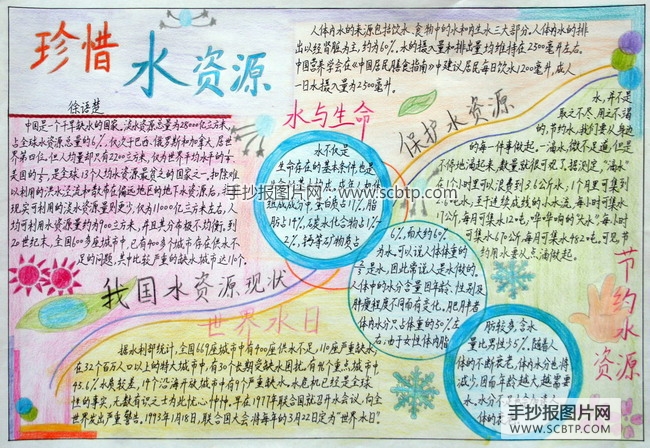 珍惜水资源
徐语楚
中国是一个干旱缺水的国家。淡水资源总量为28000亿立方米,
占全球水资源总量的6%,仅次于巴西、俄罗斯和加拿大,居世
界第四位,但人均量却只有2200立方米,仅为世界平均水平的
美国的 是全球13个人均水资源最贫乏的国家之一,扣除难
以利用的洪水泾流和散布在偏远地区的地下水资源后,
现实可利用的淡水资源量则更少,仅为11000亿立方米左右,人
均可利用水资源量约为900立方米,并且其分布极不均衡。到
20世纪末,全国600多座城市中,已有400多个城市存在供水不
足的问题,其中比较严重的缺水城市达110个。
我国水资源现状
人体内水的来源包括饮水、食物中的水和内生水三大部分。人体内水的排
出以经肾脏为主,约为60%,水的摄入量和排出量均维持在2500毫升左右。
中国营养学会在《中国居民膳食指南》中建议居民每日饮水1200毫升,成人
一日水摄入量为2500毫升。
水与生命
水不仅是
生命存在的基本条件也是
组成成分中,蛋白质占17%,脂
肪占14%,碳水化合物占1.
2%,钙等矿物质占
6%,而大约60%
为水。可以说人体体重的
是水,因此常说人是水做的。
人体中的水分含量因年龄、性别及
肥瘦程度不同而有变化。肥胖者
体内水分只占体重的50%左
右,由于女性体内脂
肪较多,含水
量比男性少5%。随着人
体的不断衰老,体内水分也将
减少,因而年龄越大越需要
水,水分不
体的衰
保护水资源
水,并不是
取之不尽,用之不竭
的,节约水,我们要从身边
的每一件事做起。一滴水,微不足道,但是
不停地滴起来,数量就很可观了。据测定,“滴水”
在1个小时里可以浪费到3.6公斤水,1个月里可集到
2.6吨水,至于连续成线的小水流,每小时可集水
17公斤,每月可集水12吨,哗哗响的“大水”,每小时
可集水670公斤,每月可集水482吨。可见,节
约用水要从点滴做起。
节约水资源
世界水日
据水利部统计,全国669座城市中有400座供水不足,110座严重缺水,
在32个百万人口以上的特大城市中,有30个长期受缺水困扰。在46个重点城市中
45.6%水质较差,14个沿海开放城市中有9个严重缺水。水危机已经是全球
性的事实,无数有识之士为此忧心忡忡。早在1977年联合国就召开水会议,向全
世界发出严重警告。1993年1月18日,联合国大会将每年的3月22日定为“世界水日”。
手抄报图片网 www.scbtp.com
手抄报图片网
WWW.SCBTP.COM